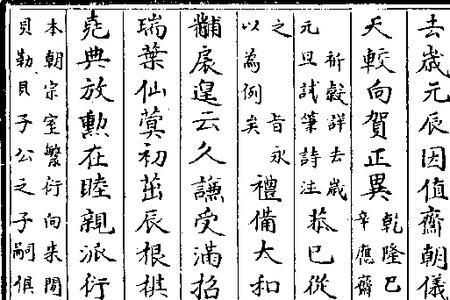 去歲元辰因值齋朝儀
天較向賀正異
乾隆己
辛應齋
祈穀詳去歲
元旦試筆詩注
恭己從
之旨永
以為例矣
禮備大和
黼扆遑云久謙受滿招
瑞葉仙蓂初茁辰根棋
堯典放勳在睦親派衍
本朝宗室繁衍向來閒
貝勒貝子公之子嗣俱